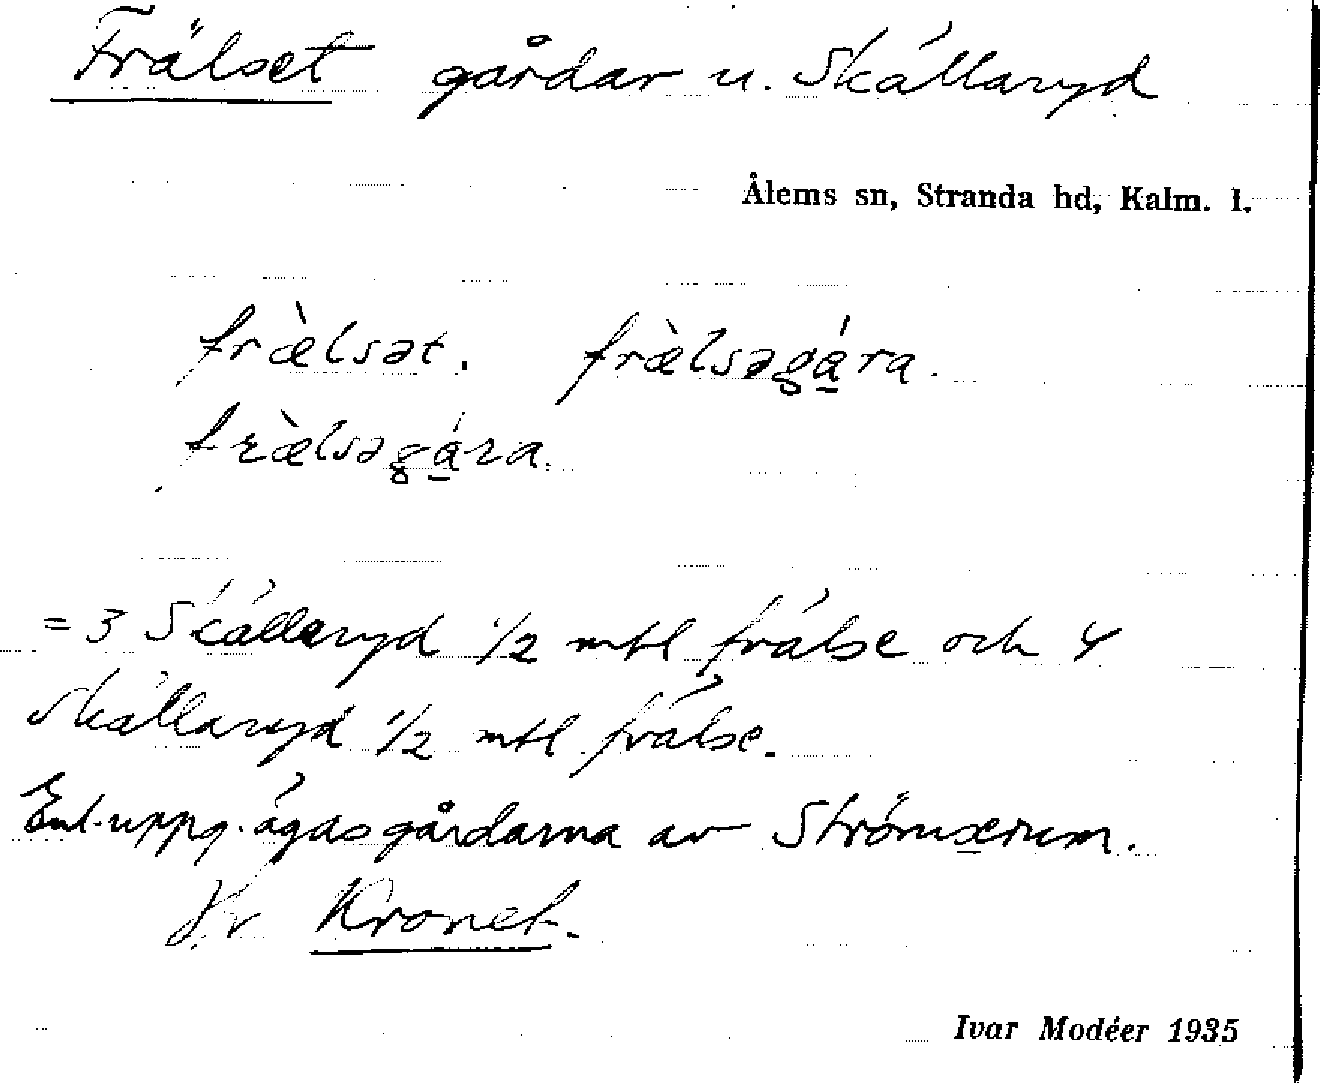 Frälset gårdar u. Skällaryd
Ålems sn, Stranda hd, Kalm. l.
fræ̀lsət. fræ̀lsəgá̱ra.
fræ̀lsəgá̱ra.
= 3 Skällaryd 1/2 mtl frälse och 4
Skällaryd 1/2 mtl frälse.
Enl. uppg. ägas gårdarna av Strömserum.
Jfr Kronet.
Ivar Modéer 1935